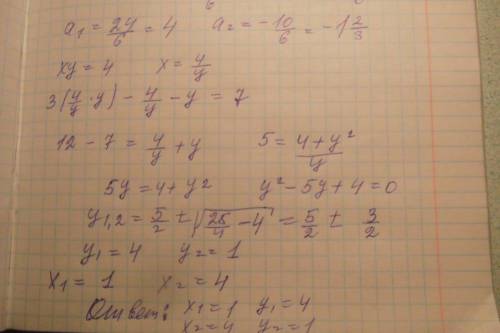 a₁ = 24/6 = 4 a₂ = -10/6 = -1 2/3
xy = 4 x = 4/y
3(4/y · y) - 4/y - y = 7
12 - 7 = 4/y + y 5 = (4 + y²)/y
5y = 4 + y² y² - 5y + 4 = 0
y₁,₂ = 5/2 ± √(25/4 - 4) = 5/2 ± 3/2
y₁ = 4 y₂ = 1
x₁ = 1 x₂ = 4
Ответ: x₁ = 1 y₁ = 4
x₂ = 4 y₂ = 1